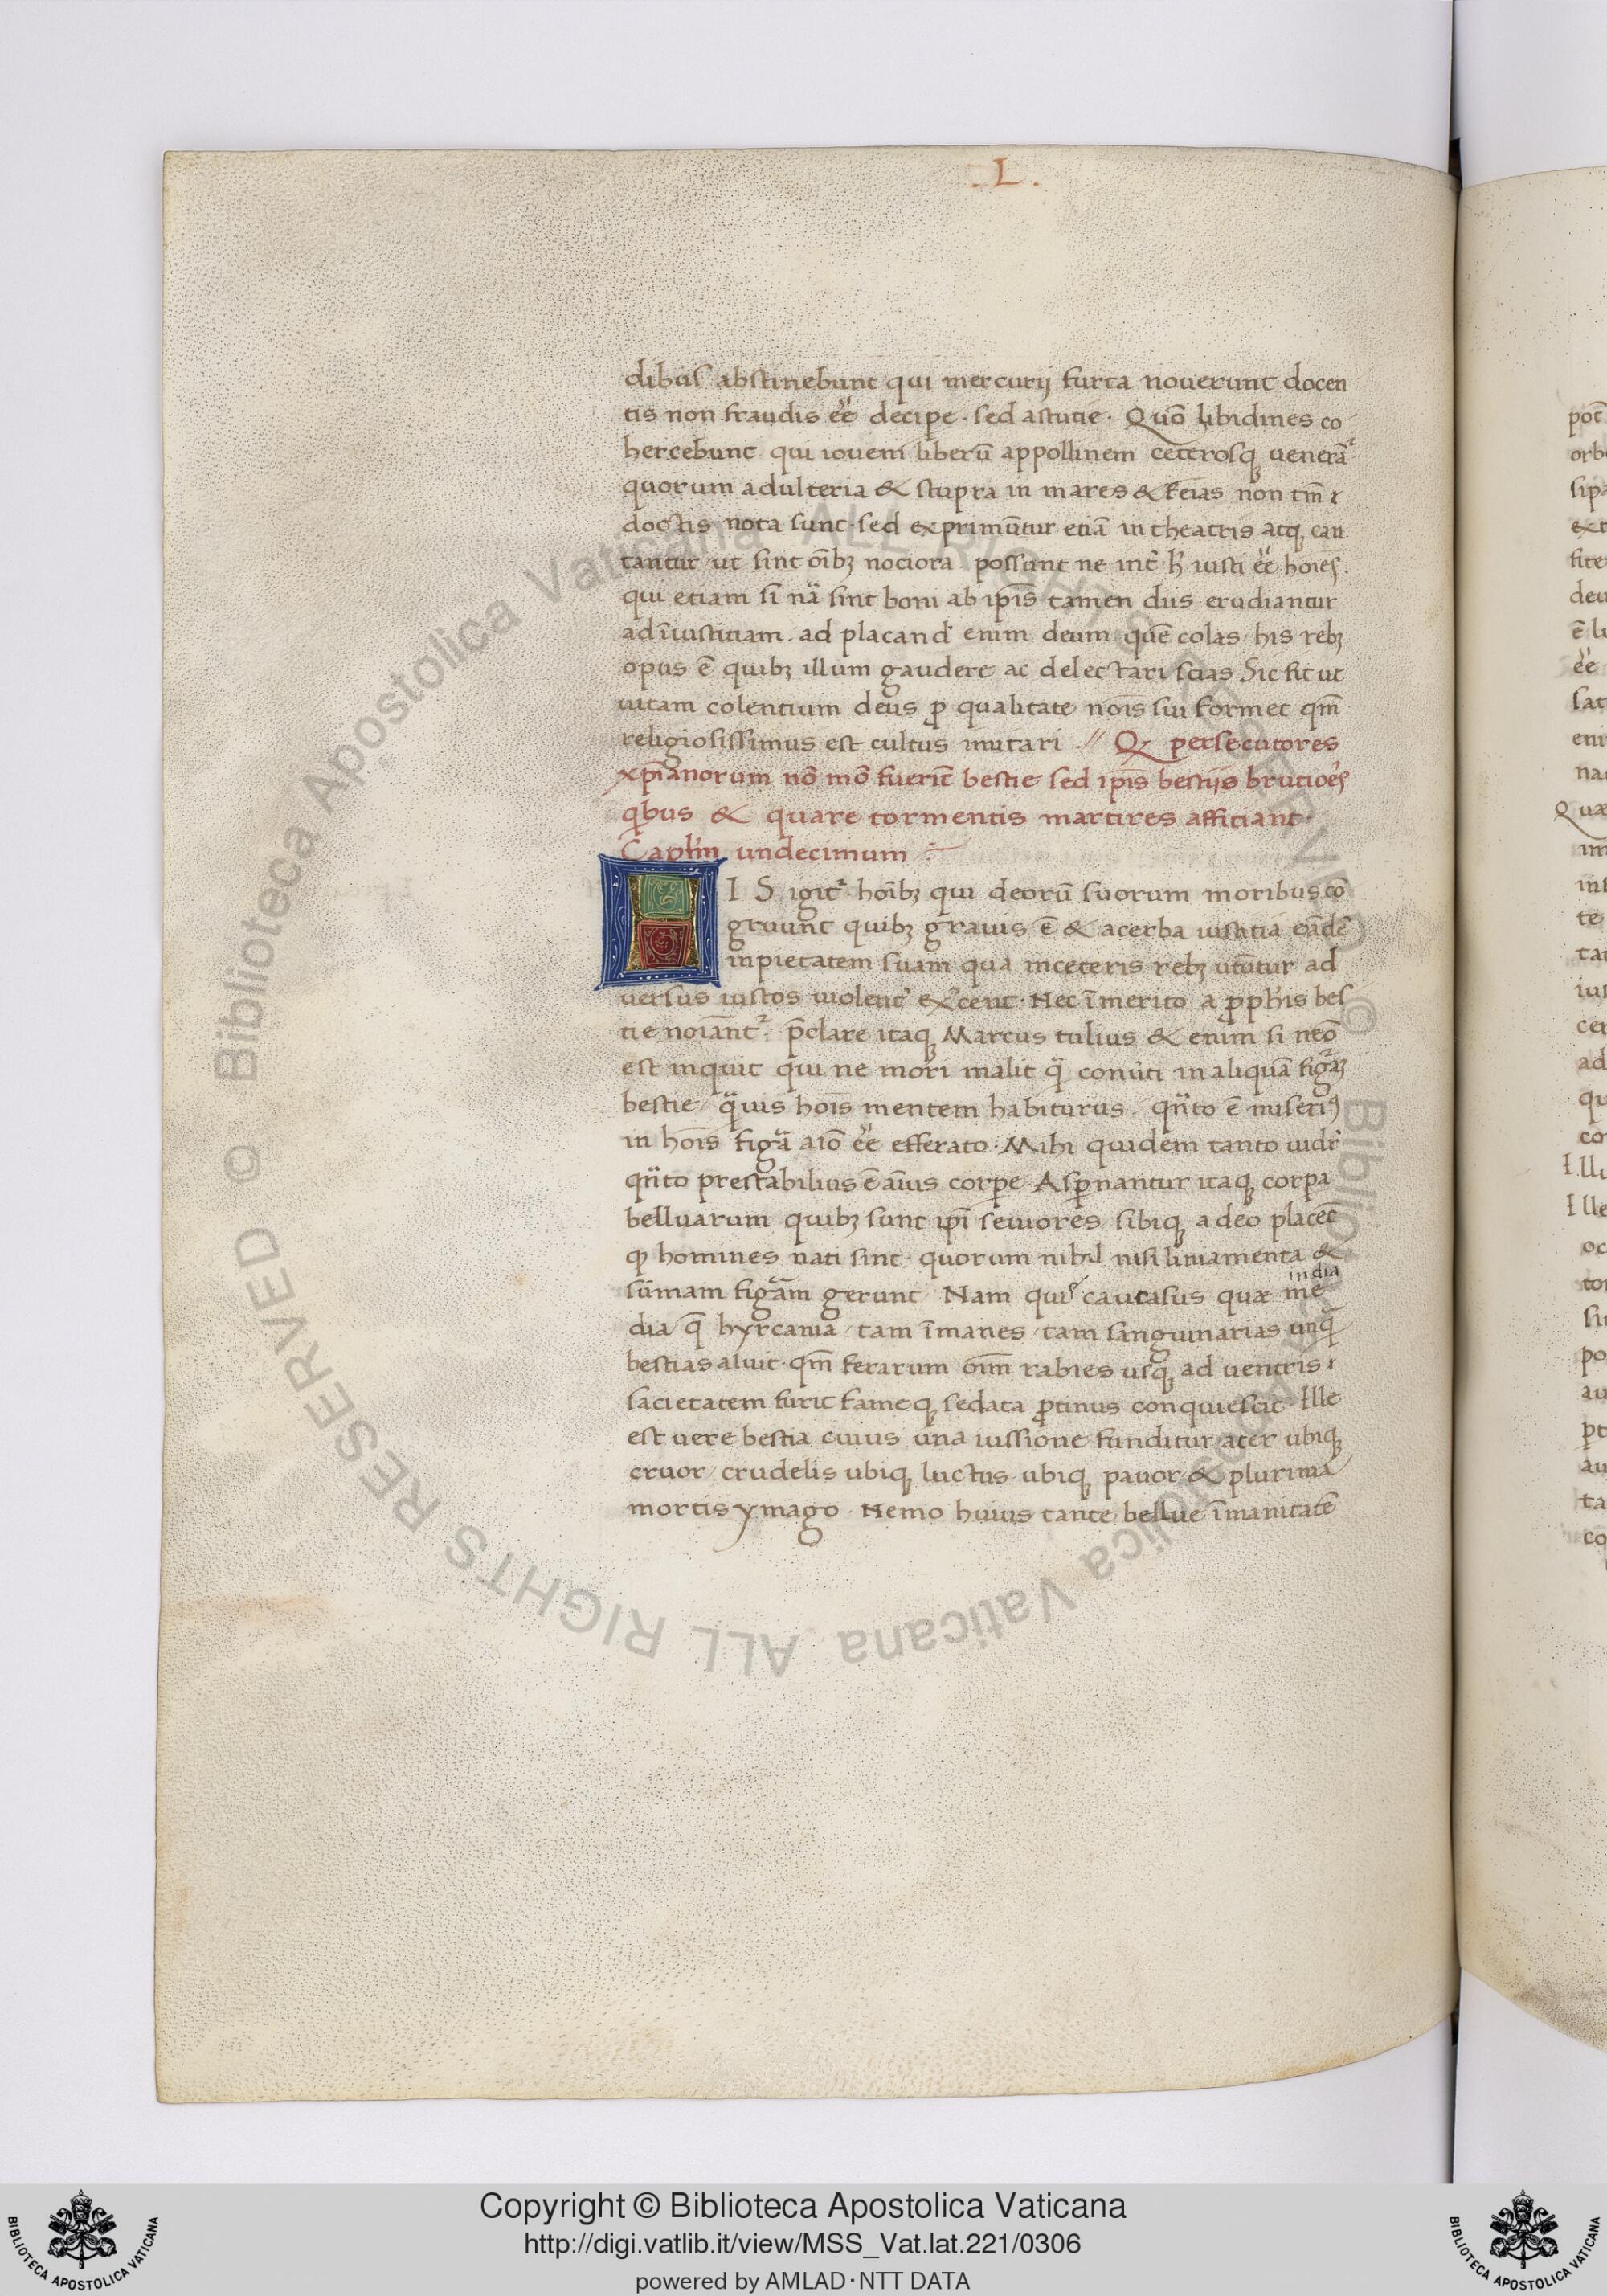 . L .
dibus abstinebunt qui mercurij furta nouerunt docen
tis non fraudis eē decipe . sed astutie . Quō libidines co
hercebunt qui iouem liberū appollinem ceterosq; uenerāt
quorum adulteria & stupra in mares & feīas non tm̄ ı
doctis nota sunt . sed exprimūtur etiā in theatris atq; can
tantur ut sint oībꝫ nociora possunt ne int̄ h̄ iusti eē hoīes .
qui etiam si nā sint boni ab ip̄is tamen diis erudiantur
ad īiustitiam . ad placand' enim deum quē colas his rebꝫ
opus ē quibꝫ illum gaudere ac delectari scias Sic fit ut
uitam colentium deus ꝓ qualitate nōis sui formet qm̄
religiosissimus est cultus imitari . // Qꝫ persecutores
xp̄ianorum nō mō fuerīt bestie sed ip̄is bestijs brutioēs
qbus & quare tormentis martires afficiant .
Capl̄m undecimum
I S igit² hoībꝫ qui deorū suorum moribus cō
gruunt quibꝫ grauis ē & acerba iustitia eādē
inpietatem suam qua inceteris rebꝫ utūtur ad
uersus iustos uiolent' ex'cent . Nec īmerito a ꝓph'is bes
tie noīant² . p̄clare itaq; Marcus tulius & enim si nēo
est inquit qui ne mori malit q̄ conu'ti in aliquā figᵃꝫ
bestie / q̄uis hoīs mentem habiturus . qn̄to ē miseriꝰ
in hoīs figā aīo eē efferato . Mihi quidem tanto uidr̄
qn̄to prestabilius ē aīus corpe . Aspnantur itaq; corpa
belluarum quibꝫ sunt ip̄i seuiores sibiq; adeo placēt
ꝙ homines nati sint . quorum nihil nisi liniamenta &
sūmam figᵃm gerunt Nam quis caucasus quæ me
india
dia / q̄ hyrcania / tam īmanes / tam sanguinarias unq̄
bestias aluit . qm̄ ferarum oīm rabies usq; ad uentris ı
sacietatem furit fameq; sedata ꝓtinus conquiescit . Ille
est uere bestia cuius una iussione funditur ater ubiq;
cruor / crudelis ubiq; luctus . ubiq; pauor & plurima
mortis ymago . Nemo huius tante bellue īmanitatē
Copyright © Biblioteca Apostolica Vaticana
http://digi.vatlib.it/view/MSS_Vat.lat.221/0306
powered by AMLAD·NTT DATA
BIBLIOTECA APOSTOLICA VATICANA
BIBLIOTECA APOSTOLICA VATICANA
© Biblioteca Apostolica Vaticana ALL RIGHTS RESERVED © Biblioteca Apostolica Vaticana ALL RIGHTS RESERVED